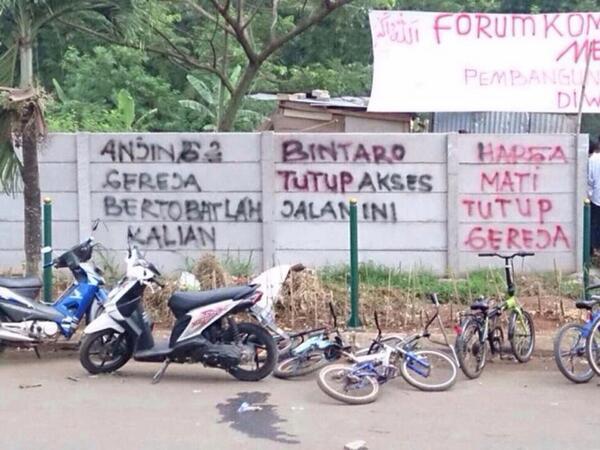 FORUM KOM
ME
PEMBANGUN
DI W
ANJING2
GEREJA
BERTOBATLAH
KALIAN
BINTARO
TUTUP AKSES
JALAN INI
HARGA
MATI
TUTUP
GEREJA